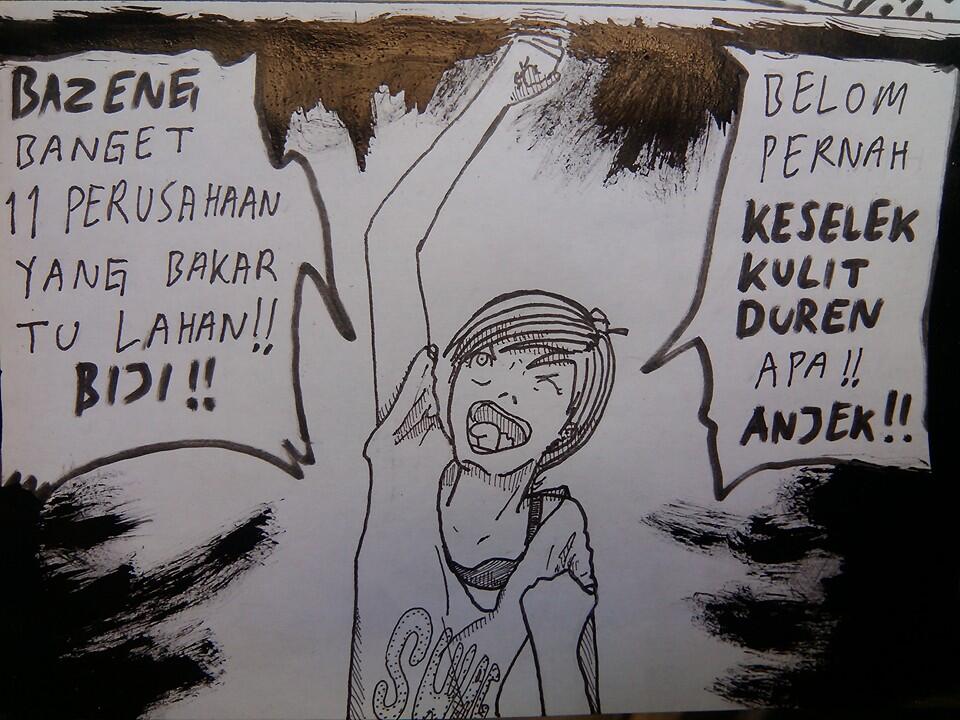 BAZENG
BANGET
11 PERUSAHAAN
YANG BAKAR
TU LAHAN!!
BIJI!!
BELOM
PERNAH
KESELEK
KULIT
DUREN
APA!!
ANJEK!!